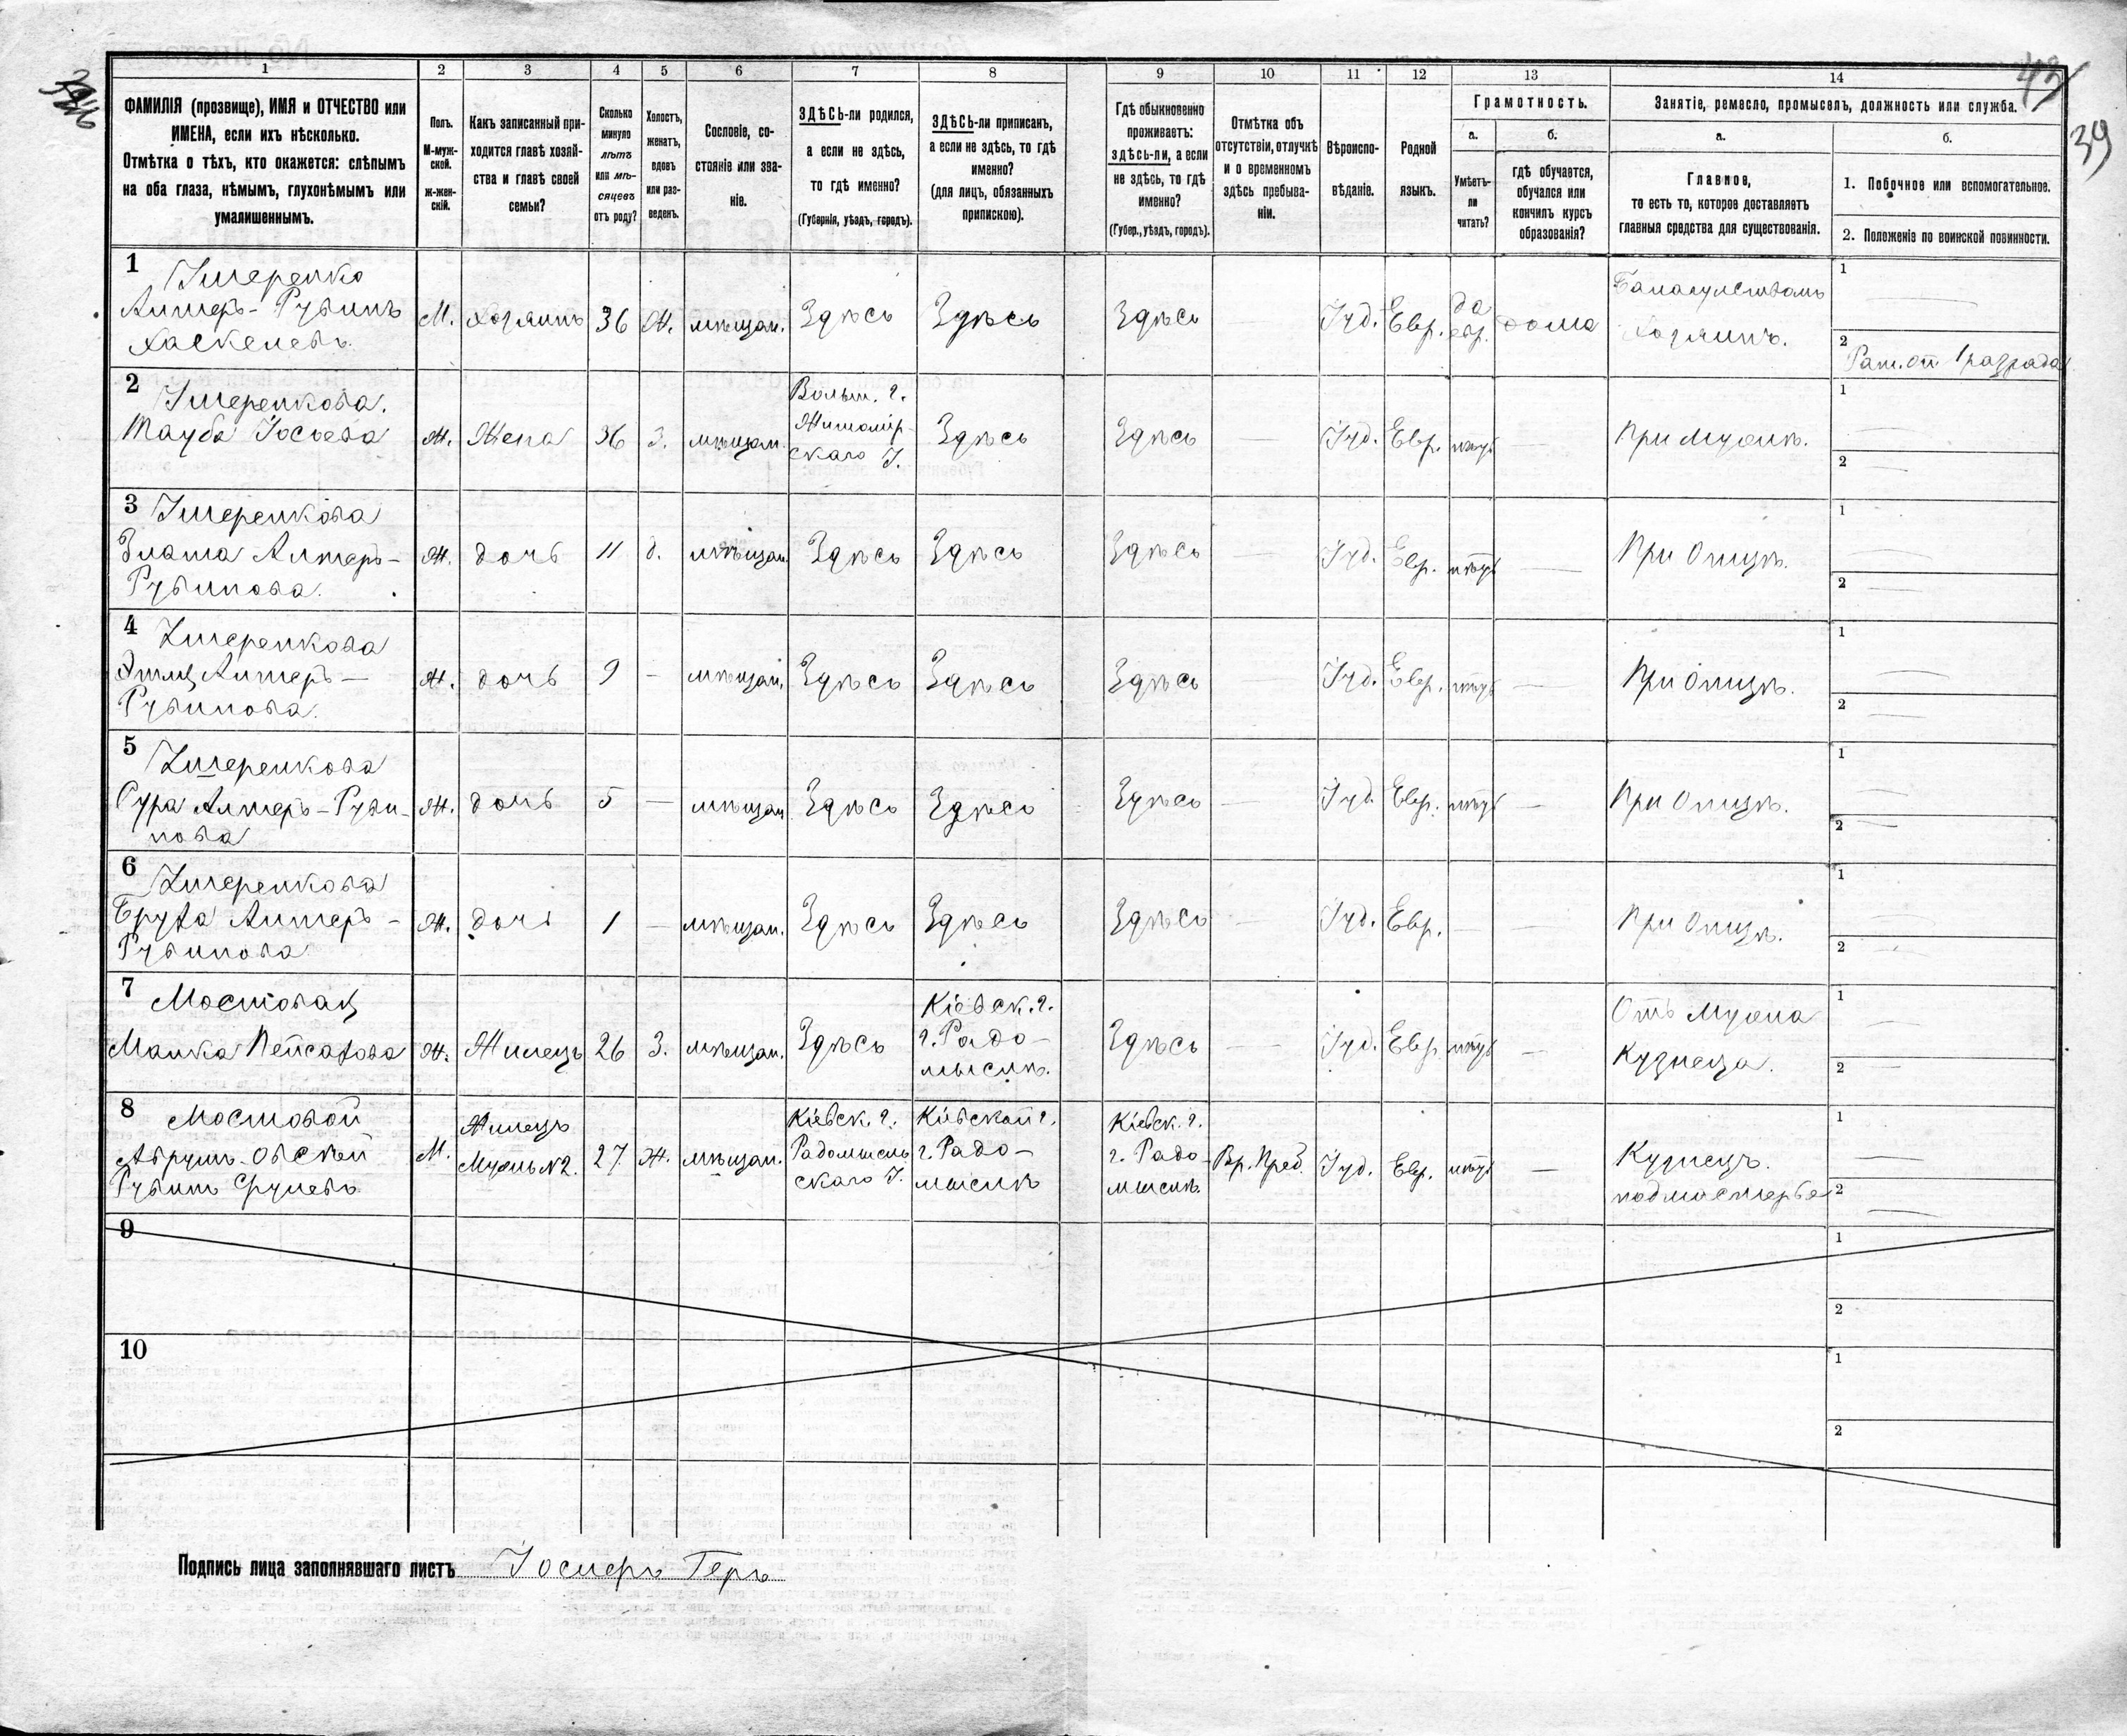 43
39
1 2 3 4 5 6 7 8 9 10 11 12 13 14
ФАМИЛІЯ (прозвище), ИМЯ и ОТЧЕСТВО или
ИМЕНА, если ихъ нѣсколько.
Отмѣтка о тѣхъ, кто окажется: слѣпымъ
на оба глаза, нѣмымъ, глухонѣмымъ или
умалишеннымъ.
Полъ.
М-муж-
ской.
ж-жен-
скій.
Какъ записанный при-
ходится главѣ хозяй-
ства и главѣ своей
семьи?
Сколько
минуло
лѣтъ
или мѣ-
сяцевъ
отъ роду?
Холостъ,
женатъ,
вдовъ
или раз-
веденъ.
Сословіе, со-
стояніе или зва-
ніе.
ЗДѢСЬ-ли родился,
а если не здѣсь,
то гдѣ именно?
(Губернія, уѣздъ, городъ).
ЗДѢСЬ-ли приписанъ,
а если не здѣсь, то гдѣ
именно?
(для лицъ, обязанныхъ
припискою).
Гдѣ обыкновенно
проживаетъ:
здѣсь-ли, а если
не здѣсь, то гдѣ
именно?
(Губер., уѣздъ, городъ).
Отмѣтка объ
отсутствіи, отлучкѣ
и о временномъ
здѣсь пребыва-
ніи.
Вѣроиспо-
вѣданіе.
Родной
языкъ.
Грамотность.
а.
Умѣетъ-
ли
читать?
б.
гдѣ обучается,
обучался или
кончилъ курсъ
образованія?
Занятіе, ремесло, промыселъ, должность или служба.
а.
Главное,
то есть то, которое доставляетъ
главныя средства для существованія.
б.
1. Побочное или вспомогательное.
2. Положеніе по воинской повинности.
1
Хаскелевъ
М. хозяинъ 36 Ж. мѣщан. Здѣсь Здѣсь Здѣсь Іуд. Евр. да евр. дома
хозяинъ.
1
2
1 разряда
2
Тауба Іосьева
Ж. Жена 36 З. мѣщан.
Волын. г.
Житомір-
скаго У.
Здѣсь Здѣсь — Іуд. Евр. нѣтъ — При Мужѣ.
1
2
3
Злата Алтеръ-
Рувинова.
Ж. дочь 11 д. мѣщан. Здѣсь Здѣсь Здѣсь — Іуд. Евр. нѣтъ — При Отцѣ.
1
2
4
Алтеръ-
Рувинова.
Ж. дочь 9 — мѣщан. Здѣсь Здѣсь Здѣсь Іуд. Евр. нѣтъ — При Отцѣ.
1
2
5
Алтеръ-Руви-
нова
Ж. дочь 5 — мѣщан Здѣсь Здѣсь Здѣсь — Іуд. Евр. нѣтъ — При Отцѣ.
1
2
6
Алтеръ-
Рувинова
Ж. дочь 1 — мѣщан. Здѣсь Здѣсь Здѣсь — Іуд. Евр. — — При Отцѣ.
1
2
7
Мостовая
Малка Пейсахова
Ж. Жилецъ 26 З. мѣщан. Здѣсь
Кіевск. г.
г. Радо-
мыслѣ.
Здѣсь — Іуд. Евр. нѣтъ —
Отъ Мужа
Кузнеца.
1
2
8
Мостовой
М.
Жилецъ
Мужъ №2.
27 Ж. мѣщан.
Кіевск. г.
Радомысль
скаго У.
Кіевской г.
г. Радо-
мыслѣ
Кіевск. г.
г. Радо-
мыслѣ.
Вр. Преб. Іуд. Евр. нѣтъ —
Кузнецъ.
подмастерье
1
2
9
1
2
10
1
2
Подпись лица заполнявшаго листъ